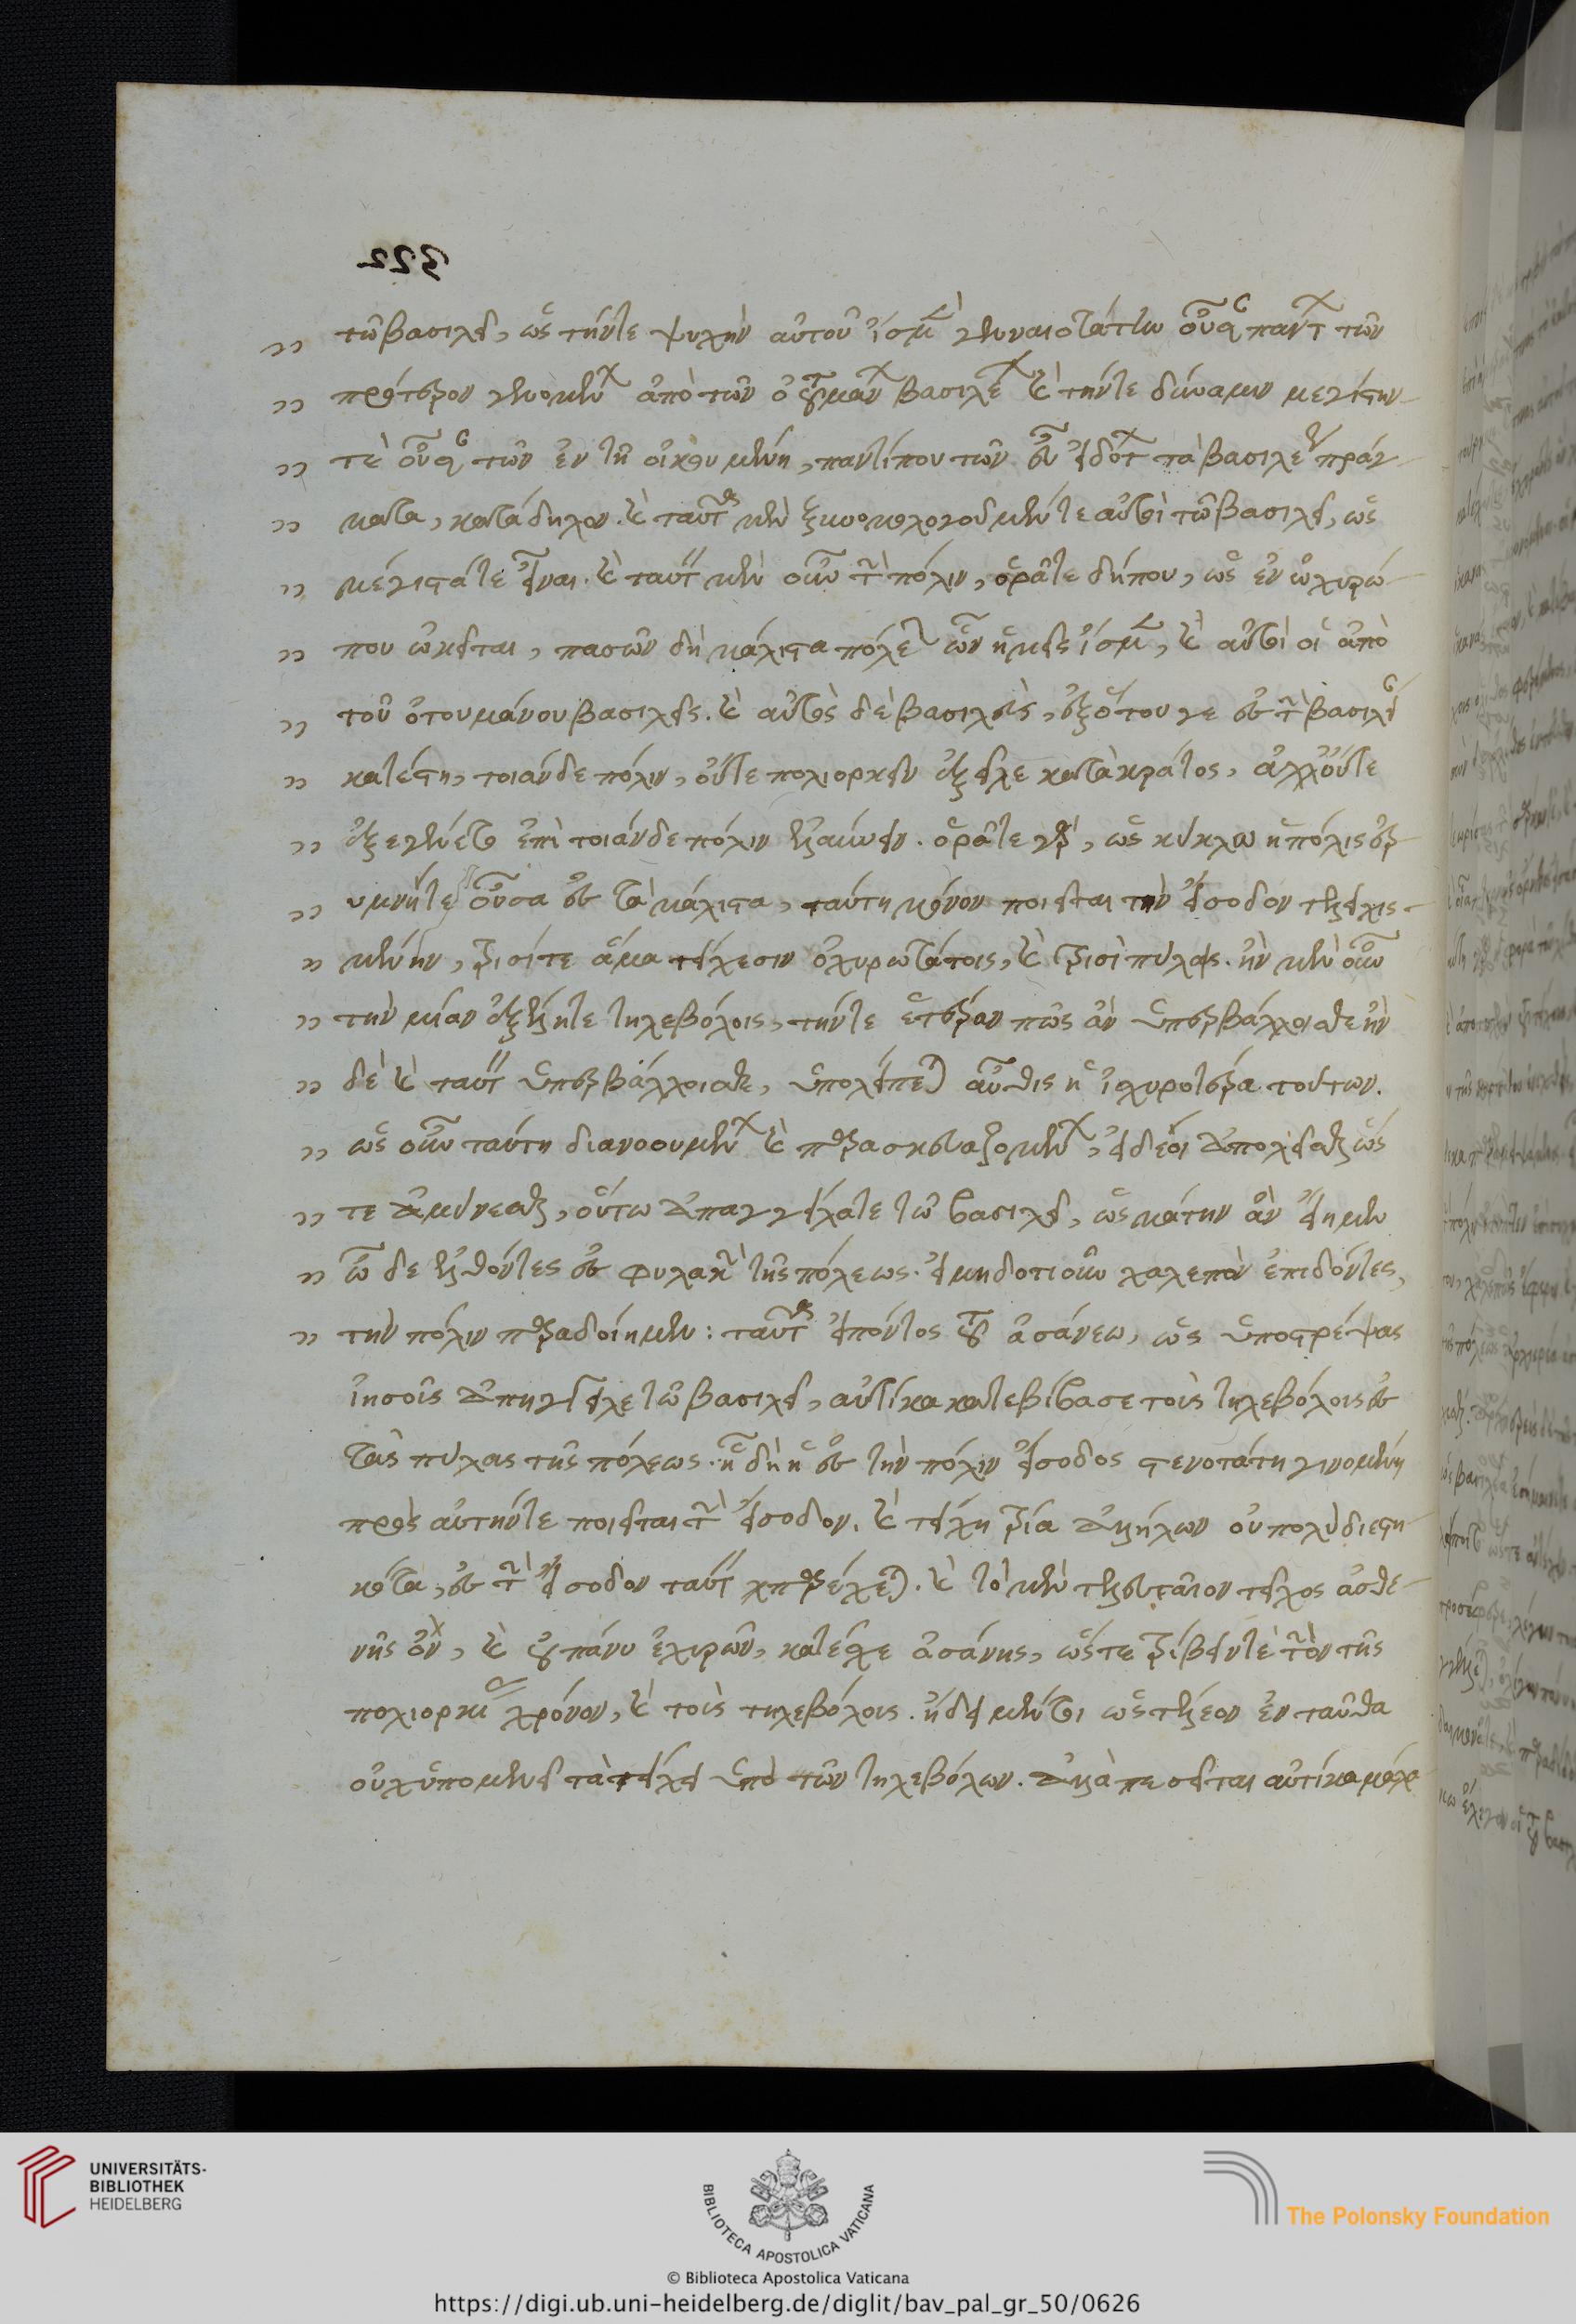 322
τῷ βασιλεῖ, ὡς τήν τε ψυχὴν αὐτοῦ ἴσμεν γενναιοτάτην οὖσαν πάντων τῶν
πρότερον γενομένων ἀπὸ τῶν ὀτουμάνων βασιλέων καὶ τήν τε δύναμιν μεγίστην
τὲ οὖσαν τῶν ἐν τῇ οἰκουμένῃ, παντί που τῶν εὖ εἰδότων τὰ βασιλέως πράγ-
ματα, κατάδηλον. καὶ ταῦτα μὲν ξυνομολογοῦμέν τε αὐτοὶ τῷ βασιλεῖ, ὡς
μέγιστά τε εἶναι. καὶ ταύτην μὲν οὖν τὴν πόλιν, ὁρᾶτε δήπου, ὡς ἐν ὠχυρῷ
που ᾤκισται, πασῶν δὴ μάλιστα πόλεων ὧν ἡμεῖς ἴσμεν, καὶ αὐτοὶ οἱ ἀπὸ
τοῦ ὀτουμάνου βασιλεῖς. καὶ αὐτὸς δὲ βασιλεὺς, ἐξ ὅτου γε ἐς τὴν βασιλείαν
κατέστη, τοιάνδε πόλιν, οὔτε πολιορκῶν ἐξεῖλε κατὰ κράτος, ἀλλ' οὔτε
ἐξεγένετο ἐπὶ τοιάνδε πόλιν ἐλαύνειν. ὁρᾶτε γὰρ, ὡς κύκλῳ ἡ πόλις ἐρ-
υμνή τε οὖσα ἐς τὰ μάλιστα, ταύτῃ μόνον ποιεῖται τὴν εἴσοδον τετειχισ-
μένην, τρισί τε ἅμα τείχεσιν ὀχυρωτάτοις, καὶ τρισὶ πύλαις. ἢν μὲν οὖν
τὴν μίαν ἐξέλητε τηλεβόλοις, τήν τε ἑτέραν πῶς ἂν ὑπερβάλλοισθε ἢν
δὲ καὶ ταύτην ὑπερβάλλοισθε, ὑπολείπεται αὖθις ἡ ἰσχυροτέρα τούτων.
ὡς οὖν ταύτῃ διανοουμένων καὶ παρασκευαζομένων, εἰ δέοι ἀπολεῖσθαι ὥς
τε ἀμύνεσθαι, οὕτω ἀπαγγείλατε τῷ βασιλεῖ, ὡς μάτην ἂν εἴημεν
ὧδε ἐλθόντες ἐς φυλακὴν τῆς πόλεως. εἰ μηδοτιοῦν χαλεπὸν ἐπιδόντες,
τὴν πόλιν παραδοίημεν: ταῦτα εἰπόντος τοῦ ἀσάνεω, ὡς ὑποστρέψας
ἰησοῖς ἀπήγγειλε τῷ βασιλεῖ, αὐτίκα κατεβίβασε τοὺς τηλεβόλους ἐς
τὰς πύλας τῆς πόλεως. ᾗ δὴ ἡ ἐς τὴν πόλιν εἴσοδος στενοτάτη γινομένη
πρὸς αὐτήν τε ποιεῖται τὴν εἴσοδον. καὶ τείχη τρία ἀλλήλων οὐ πολὺ διεστη
κότα, ἐς τὴν εἴσοδον ταύτην παρέχεται. καὶ τὸ μὲν τελευταῖον τεῖχος ἀσθε-
νὴς ὂν, καὶ οὐ πάνυ ἐχυρὸν, κατέσχε ἀσάνης, ὥστε τρίβειν τὲ τὸν τῆς
πολιορκίας χρόνον, καὶ τοὺς τηλεβόλους. ᾔδει μέντοι ὡς πλέον ἐνταῦθα
οὐχ ὑπομενεῖ τὰ τείχη ὑπὸ τῶν τηλεβόλων. ἀλλὰ πεσεῖται αὐτίκα μάλα
UNIVERSITÄTS-
BIBLIOTHEK
HEIDELBERG
BIBLIOTECA APOSTOLICA VATICANA
The Polonsky Foundation
© Biblioteca Apostolica Vaticana
https://digi.ub.uni-heidelberg.de/diglit/bav_pal_gr_50/0626